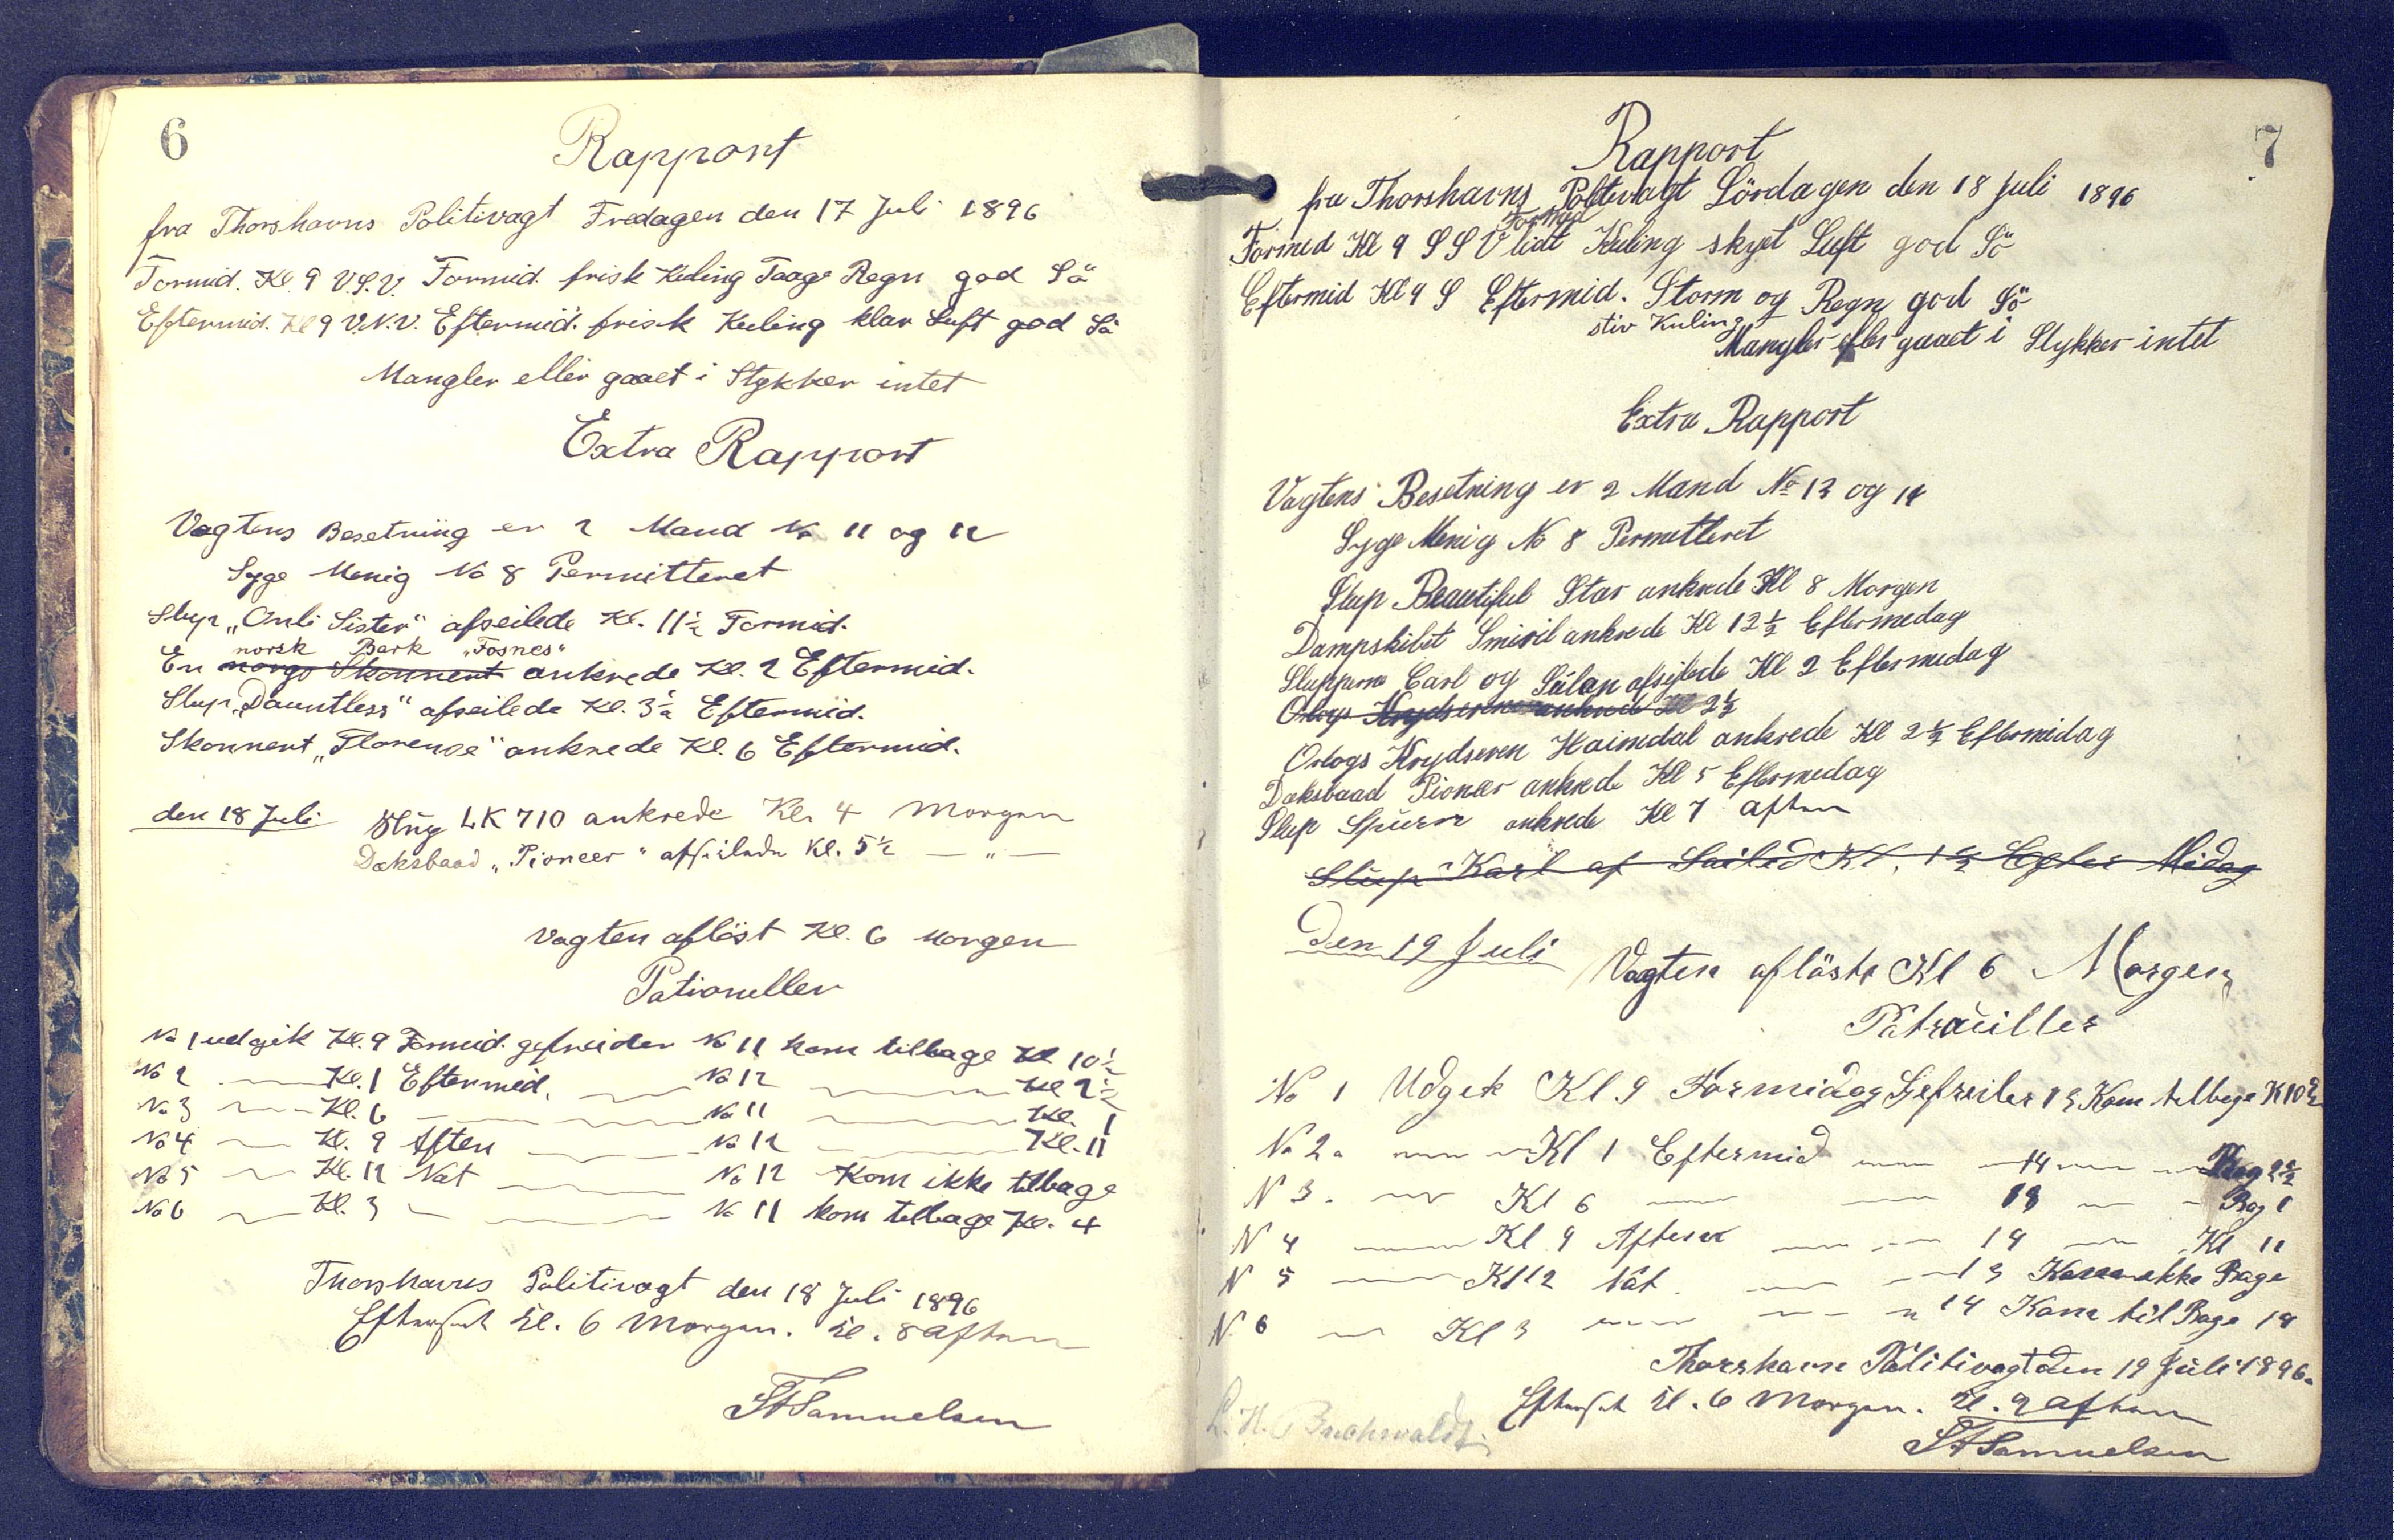 6
Rapport
fra Thorshavns Politivagt Fredagen den 17 Juli 1896
Formid. Kl. 9 V.S.V. Formid. frisk Kuling Taage Regn god Sö
Eftermid. Kl 9 V.N.V. Eftermid. frisk Kuling klar Luft god Sö
Mangler eller gaaet i Stykker intet
Extra Rapport
Vagtens Besetning er 2 Mand No 11 og 12
Syge Menig No 8 Permitteret
Slup „Onli Sister" afseilede Kl. 11½ Formid.
norsk Bark „Fosnes"
En norgs Skonnert ankrede Kl. 2 Eftermid.
Slup „Dauntless" afseilede Kl. 3½ Eftermid.
Skonnert „Florense" ankrede Kl. 6 Eftermid.
den 18 Juli Slup LK 710 ankrede Kl. 4 Morgen
Dæksbaad „Pioneer" afseilede Kl. 5½ — „ —
Vagten aflöst Kl. 6 Morgen
Pationeller
No 1 udgik Kl. 9 Formid. gefreider No 11 kom tilbage Kl 10½
No 2 — Kl. 1 Eftermid. — No 12 — Kl 2½
No 3 — Kl. 6 — No 11 — Kl. 1
No 4 — Kl. 9 Aften — No 12 — Kl. 11
No 5 — Kl. 12 Nat — No 12 Kom ikke tilbage
No 6 — Kl. 3 — No 11 kom tilbage Kl. 4
Thorshavns Politivagt den 18 Juli 1896
Efterseet Kl. 6 Morgen. Kl. 8 Aften
Samuelsen
7
Rapport
fra Thorshavns Politivagt Lördagen den 18 Juli 1896
Formid
Formid Kl 9 S S V lidt Kuling skyet Luft god Sö
Eftermid Kl 9 S Eftermid. Storm og Regn god Sö
stiv Kuling
Mangler eller gaaet i Stykker intet
Extra Rapport
Vagtens Besetning er 2 Mand No 13 og 14
Syge Menig No 8 Permitteret
Slup Beautiful Star ankrede Kl 8 Morgen
Dampskibet Smiril ankrede Kl 12½ Eftermedag
Slupperne Carl og Sulan afseilede Kl 2 Eftermedag
Orlogs Krydseren ankrede Kl 2½
Orlogs Krydseren Haimdal ankrede Kl 2½ Eftermidag
Dæksbaad Pioner ankrede Kl 5 Eftermedag
Slup Spurn ankrede Kl 7 Aften
Slup Karl af Sailed Kl. 1½ Efter Midag
Den 19 Juli Vagten aflöste Kl 6 Morgen
Patrouiller
No 1 Udgek Kl. 9 Formidag Gefreiter 13 Kom telbage K 10½
No 2 — Kl 1 Eftermid — 14 — 2½
N 3. — Kl 6 — 13 — Bag 1
N 4 — Kl 9 Aften — 14 — Kl 11
N 5 — Kl 12 Nat — 13 Kom ikke Bage
N 6 — Kl 3 — 14 Kom til Bage
Thorshavn Politivagt den 19 Juli 1896.
Efterseet Kl. 6 Morgen. Kl. 9 Aften
Samuelsen
L. H. Buchwaldt